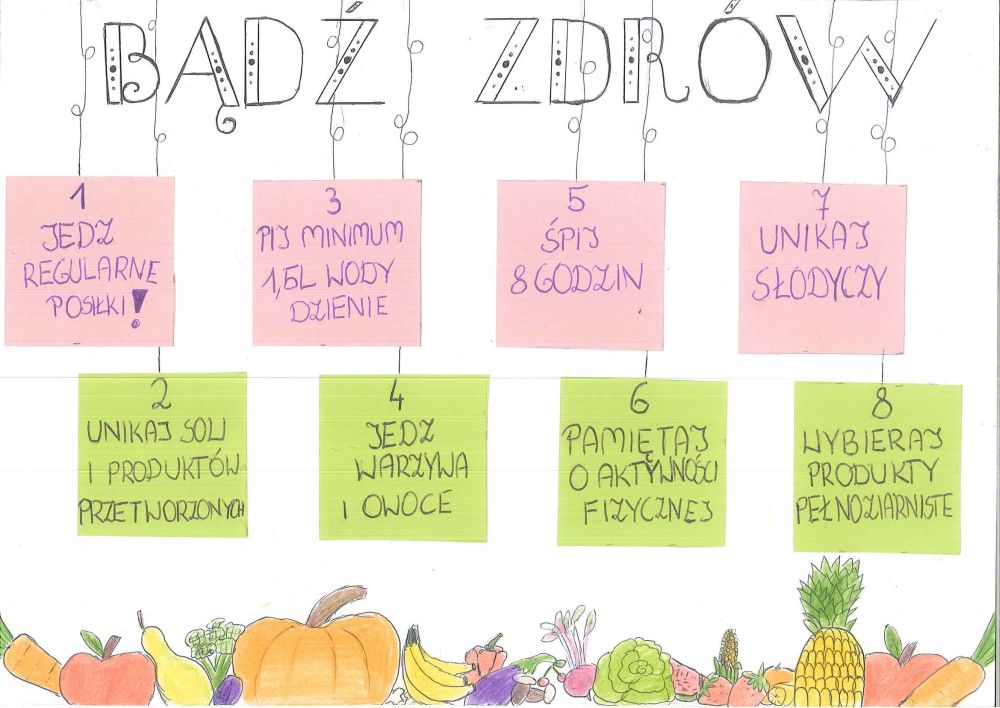 BĄDŹ ZDRÓW
1
JEDZ
REGULARNE
POSIŁKI!
2
UNIKAJ SOLI
I PRODUKTÓW
PRZETWORZONYCH
3
PIJ MINIMUM
1,5L WODY
DZIENIE
4
JEDZ
WARZYWA
I OWOCE
5
ŚPIJ
8 GODZIN
6
PAMIĘTAJ
O AKTYWNOŚCI
FIZYCZNEJ
7
UNIKAJ
SŁODYCZY
8
WYBIERAJ
PRODUKTY
PEŁNOZIARNISTE